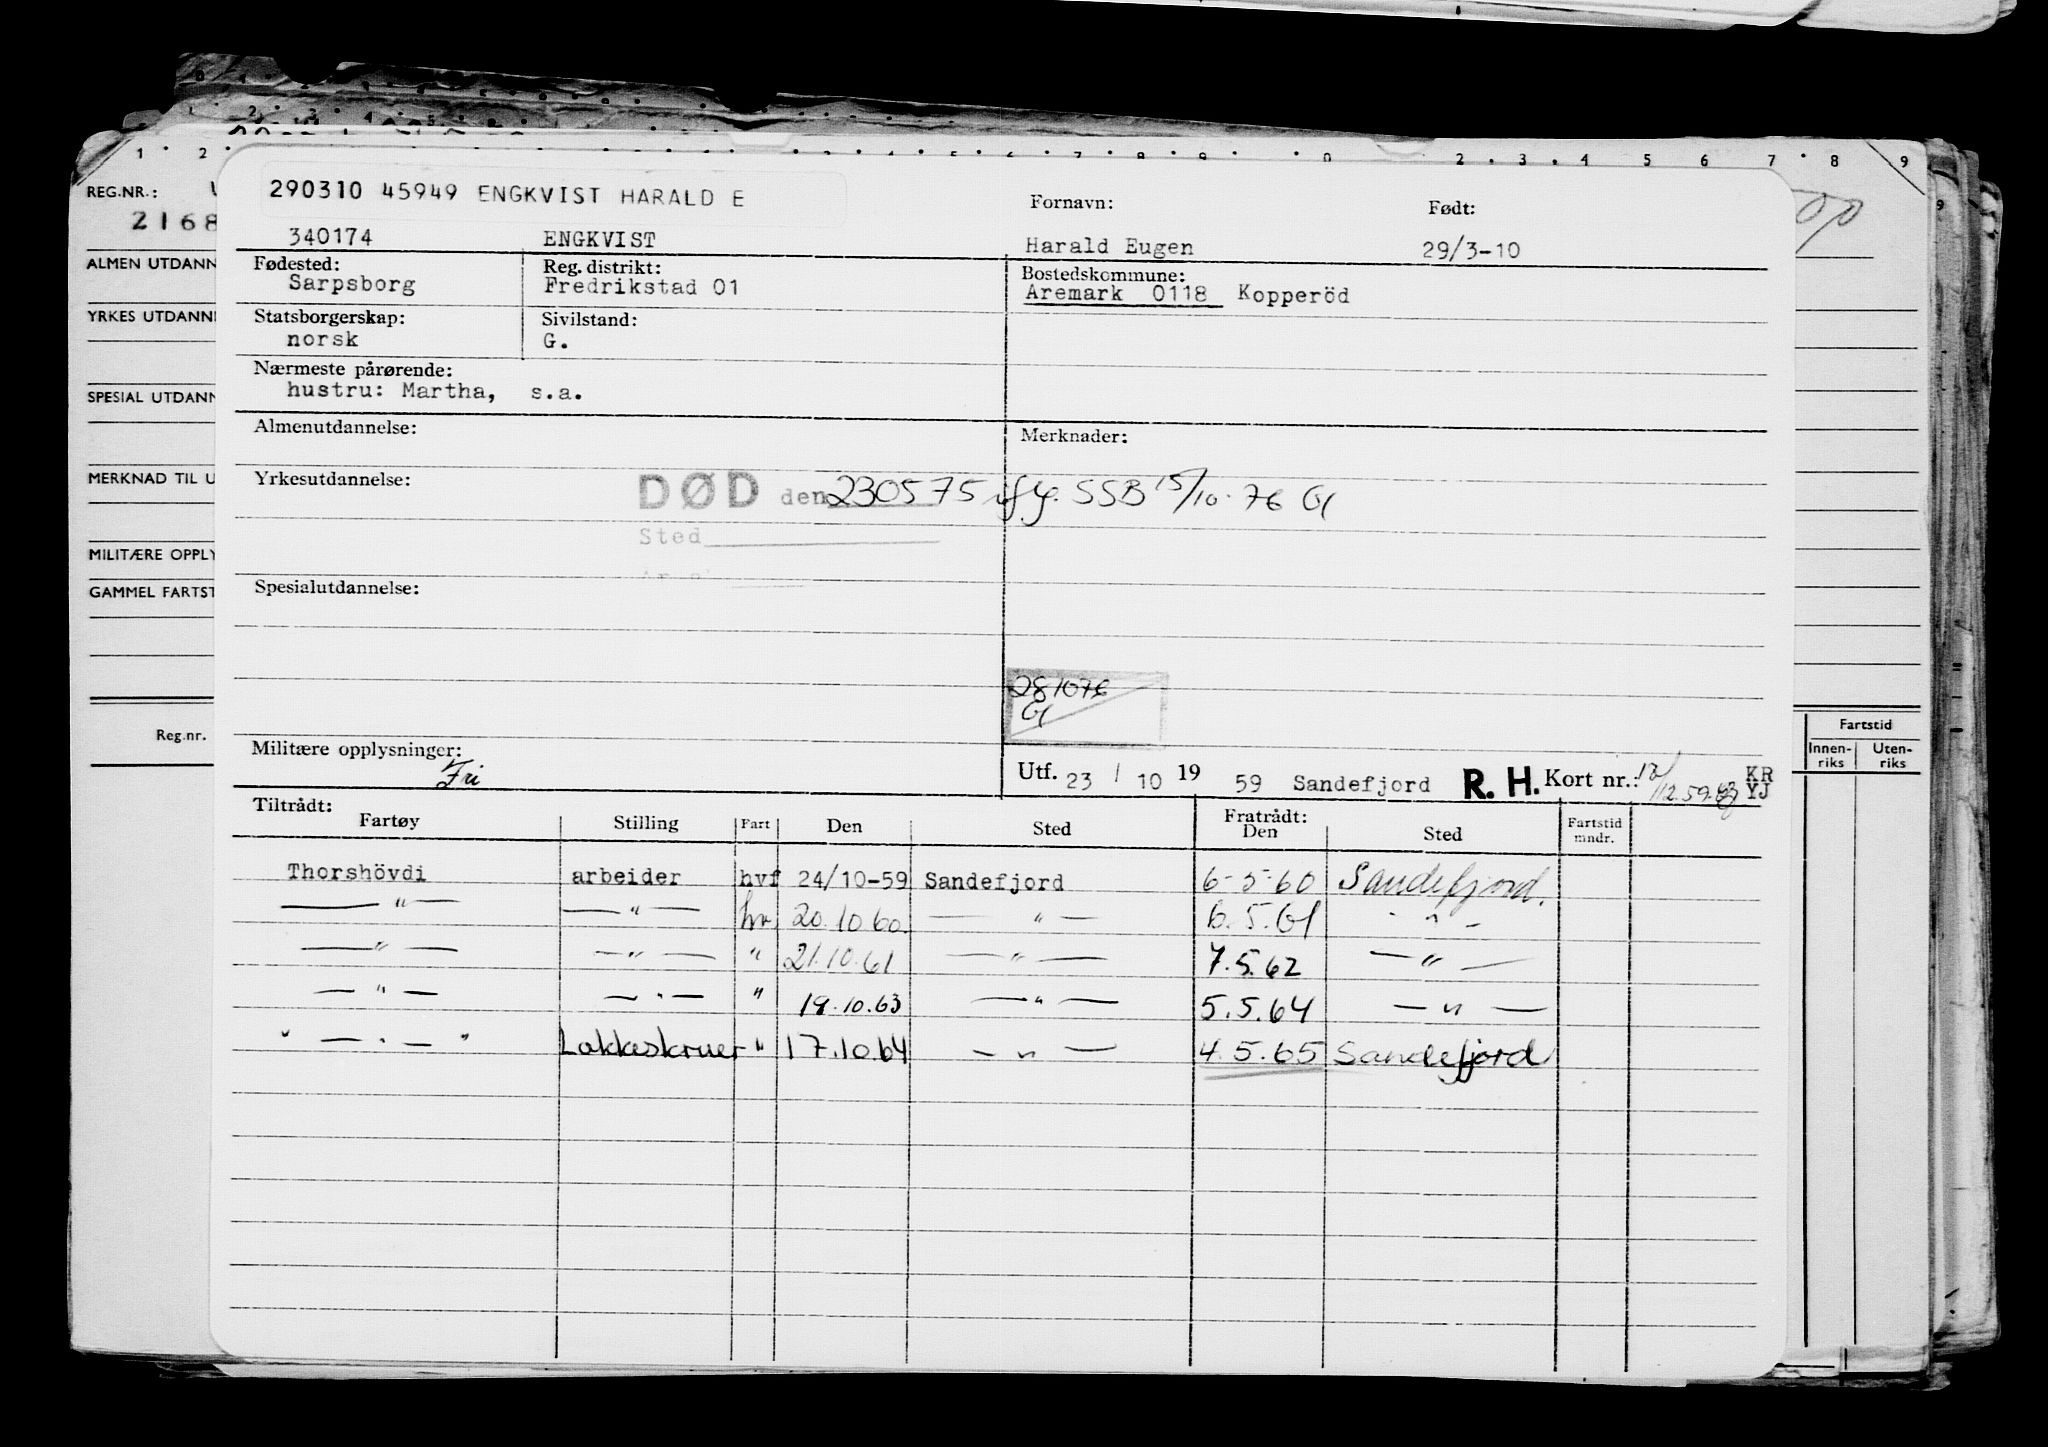 1 2 3 4 5 6 7 8 9 0 2 3 4 5 6 7 8 9
REG.NR.:
2168
290310 45949 ENGKVIST HARALD E
Fornavn: Født:
340174 ENGKVIST Harald Eugen 29/3-10
ALMEN UTDANN
Fødested: Reg. distrikt: Bostedskommune:
Sarpsborg Fredrikstad 01 Aremark 0118 Kopperöd
YRKES UTDANNE
Statsborgerskap: Sivilstand:
norsk G.
Nærmeste pårørende:
hustru: Martha, s.a.
SPESIAL UTDANN
Almenutdannelse: Merknader:
MERKNAD TIL U
Yrkesutdannelse:
DØD den 230575 iflg. SSB 15/10-76 Gl
Sted
MILITÆRE OPPLY
GAMMEL FARTST
Spesialutdannelse:
281076
Gl
Reg.nr.
Fartstid
Innen-riks Uten-riks
Militære opplysninger:
Fri
Utf. 23 / 10 19 59 Sandefjord R. H. Kort nr.: KR
YJ
Tiltrådt: Fratrådt:
Fartøy Stilling Fart Den Sted Den Sted Fartstid mndr.
Thorshövdi arbeider hvf 24/10-59 Sandefjord 6-5-60 Sandefjord.
— " — — " — hv 20.10.60 — " — 6.5.61 - " -
— " — — " — " 21.10.61 — " — 7.5.62 — " —
— " — — " — " 19.10.63 — " — 5.5.64 — " —
" — " — " Lakkeskruer " 17.10.64 — " — 4.5.65 Sandefjord